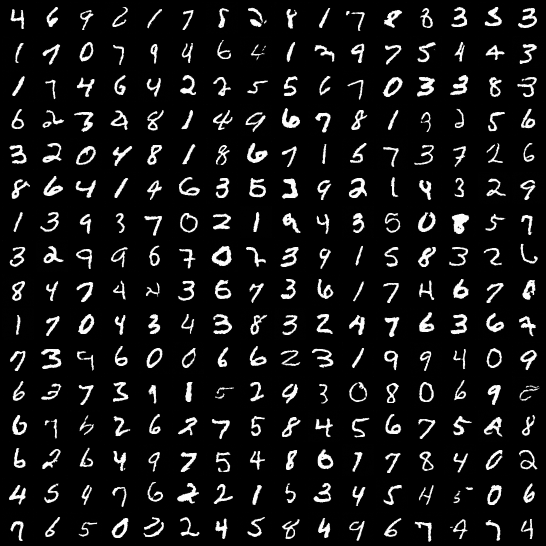 4 6 9 2 1 7 5 2 8 1 7 8 8 3 5 3
1 7 0 7 9 4 6 4 1 2 9 7 5 4 4 3
1 7 4 6 4 2 2 5 5 6 7 0 3 3 8 3
6 2 3 2 8 1 4 9 6 7 8 1 9 2 5 6
3 2 0 4 8 1 8 6 7 1 5 7 3 7 2 6
8 6 4 1 4 6 3 5 3 9 2 1 4 3 2 9
1 3 9 3 7 0 2 1 9 4 3 5 0 8 5 7
3 2 9 9 6 7 0 7 3 9 1 5 8 3 2 6
8 4 7 4 2 3 6 7 3 6 1 7 4 6 7 8
1 7 0 4 3 4 3 8 3 2 4 7 6 3 6 7
7 3 9 6 0 0 6 6 2 3 1 9 9 4 0 9
6 2 7 3 9 1 5 2 9 3 0 8 0 6 9 8
6 7 6 2 6 2 7 5 8 4 5 6 7 5 8 8
6 2 6 4 9 7 5 4 8 6 1 7 8 4 0 2
4 5 9 7 6 2 2 1 5 3 4 5 4 5 0 6
7 6 5 0 3 2 4 5 8 4 9 6 7 4 7 4